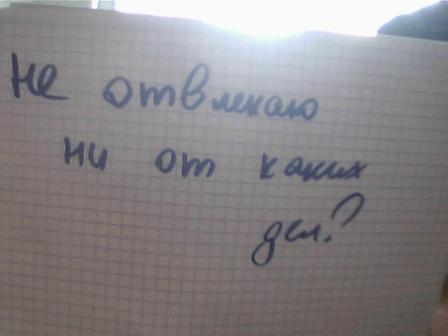 Не отвлекаю
ни от каких
дел?